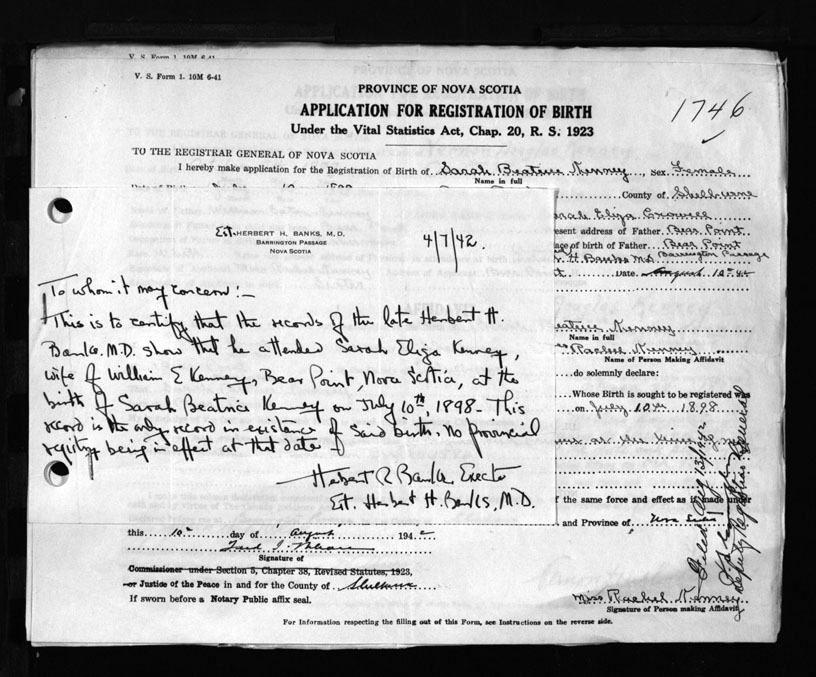 V. S. Form 1. 10M 6-41
V. S. Form 1. 10M 6-41
PROVINCE OF NOVA SCOTIA
APPLICATION FOR REGISTRATION OF BIRTH
1746
Under the Vital Statistics Act, Chap. 20, R. S. 1923
TO THE REGISTRAR GENERAL OF NOVA SCOTIA
I hereby make application for the Registration of Birth of Sarah Beatrice Kenney Sex Female
Name in full
County of Shelburne
Sarah Eliza
Present address of Father Bear Point
Place of birth of Father Bear Point
H. H. Banks M.D. Barrington Passage
Date August 10th 42
Est. HERBERT H. BANKS, M.D.
BARRINGTON PASSAGE
NOVA SCOTIA
4/7/42.
To whom it may concern:-
This is to certify that the records of the late Herbert H.
Banks. M.D. show that he attended Sarah Eliza Kenney,
wife of William E Kenney, Bear Point, Nova Scotia, at the
birth of Sarah Beatrice Kenney on July 10th, 1898. This
record is the only record in existance of said birth. No provincial
registry being in effect at that date.
Hebert R Banks Executor
Est. Herbert H. Banks, M.D.
Beatrice Kenney
Name in full
Rachel Kenney
Name of Person Making Affidavit
do solemnly declare:
Whose Birth is sought to be registered was
on July 10th 1898
of the same force and effect as if made under
and Province of Nova Scotia
this 10th day of August 1942
Signature of
Commissioner under Section 5, Chapter 38, Revised Statutes, 1923,
or Justice of the Peace in and for the County of Shelburne
If sworn before a Notary Public affix seal.
Miss Rachel Kenney
Signature of Person making Affidavit
Filed Aug 13/1942
Deputy Registrar General
For Information respecting the filling out of this Form, see Instructions on the reverse side.